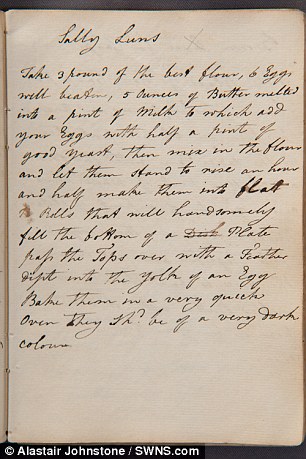 Sally Luns
Take 3 pound of the best flour, 6 Eggs
well beaten, 5 Ounces of Butter melted
into a pint of Milk to which add
your Eggs with half a pint of
good yeast, then mix in the flour
and let them stand to rise an hour
and half make them into flat
Rolls that will handsomely
fill the bottom of a Dish Plate
pass the Tops over with a Feather
dipt into the yolk of an Egg
Bake them in a very quick
Oven they Shd. be of a very dark
colour
© Alastair Johnstone / SWNS.com